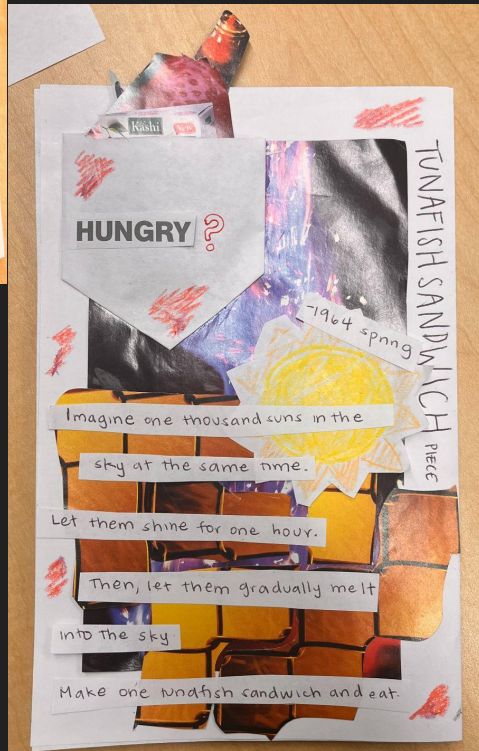 Kashi
HUNGRY?
TUNAFISH SANDWICH PIECE
-1964 spring
Imagine one thousand suns in the
sky at the same time.
Let them shine for one hour.
Then, let them gradually melt
into the sky.
Make one tunafish sandwich and eat.